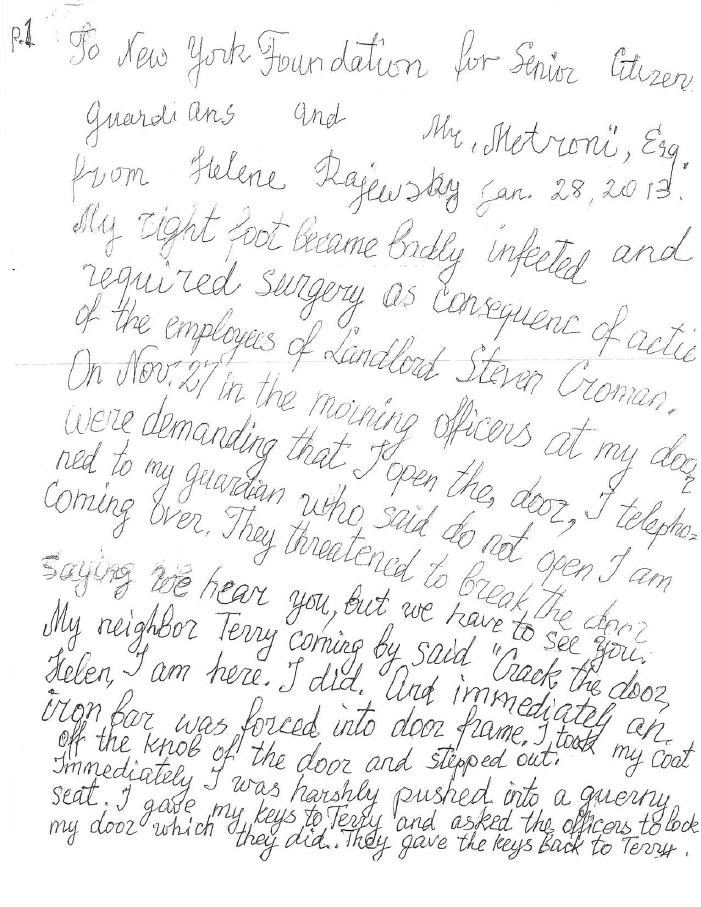 p.1
To New York Foundation for Senior Citizen
guardians and Mr. "Metroni", Esq.
from Helene Rajewsky Jan. 28, 2013.
My right foot became badly infected and
required surgery as consequenc of actio
of the employees of Landlord Steven Croman.
On Nov. 27 in the morning officers at my door
were demanding that I open the, door, I telepho=
ned to my guardian who said do not open I am
coming over. They threatened to break the door
saying we hear you, but we have to see you.
My neighbor Terry coming by said "Crack the door,
Helen, I am here. I did. And immediately an
iron bar was forced into door frame. I took my coat
off the knob of the door and stepped out.
Immediately I was harshly pushed into a guerny
seat. I gave my keys to Terry and asked the officers to lock
my door which they did.. They gave the keys back to Terry.